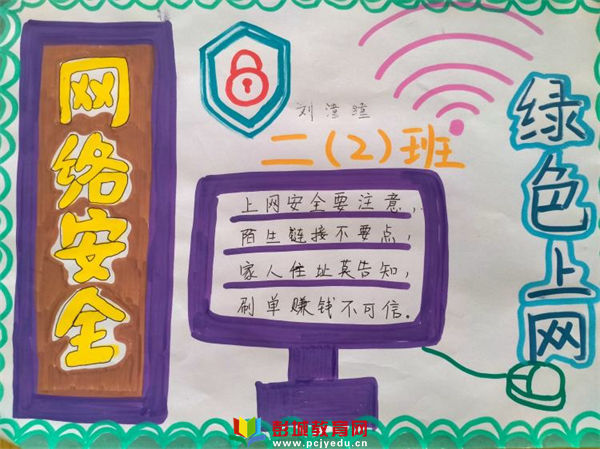 网络安全
刘
二(2)班
上网安全要注意,
陌生链接不要点,
家人住址莫告知,
刷单赚钱不可信.
绿色上网
彭城教育网
www.pcjyedu.cn